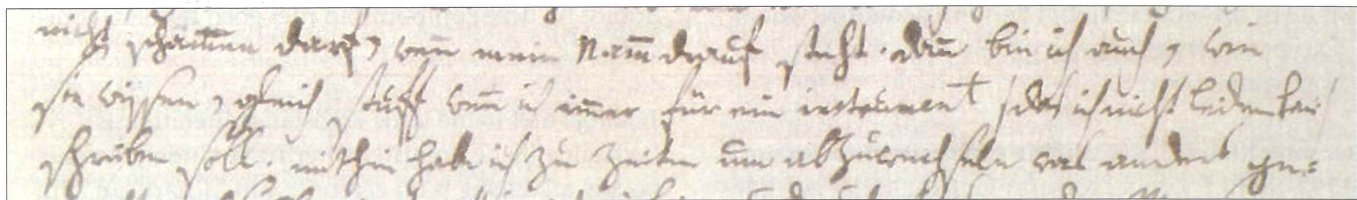 nicht schämen darf, wen̄ mein Nam̄ drauf steht. dan̄ bin ich auch, wie
sie wissen, gleich stuff wen̄ ich im̄er für ein instrument /das ich nicht leiden kan/
schreiben soll. mithin habe ich zu zeiten um abzuwechseln was anders ge=